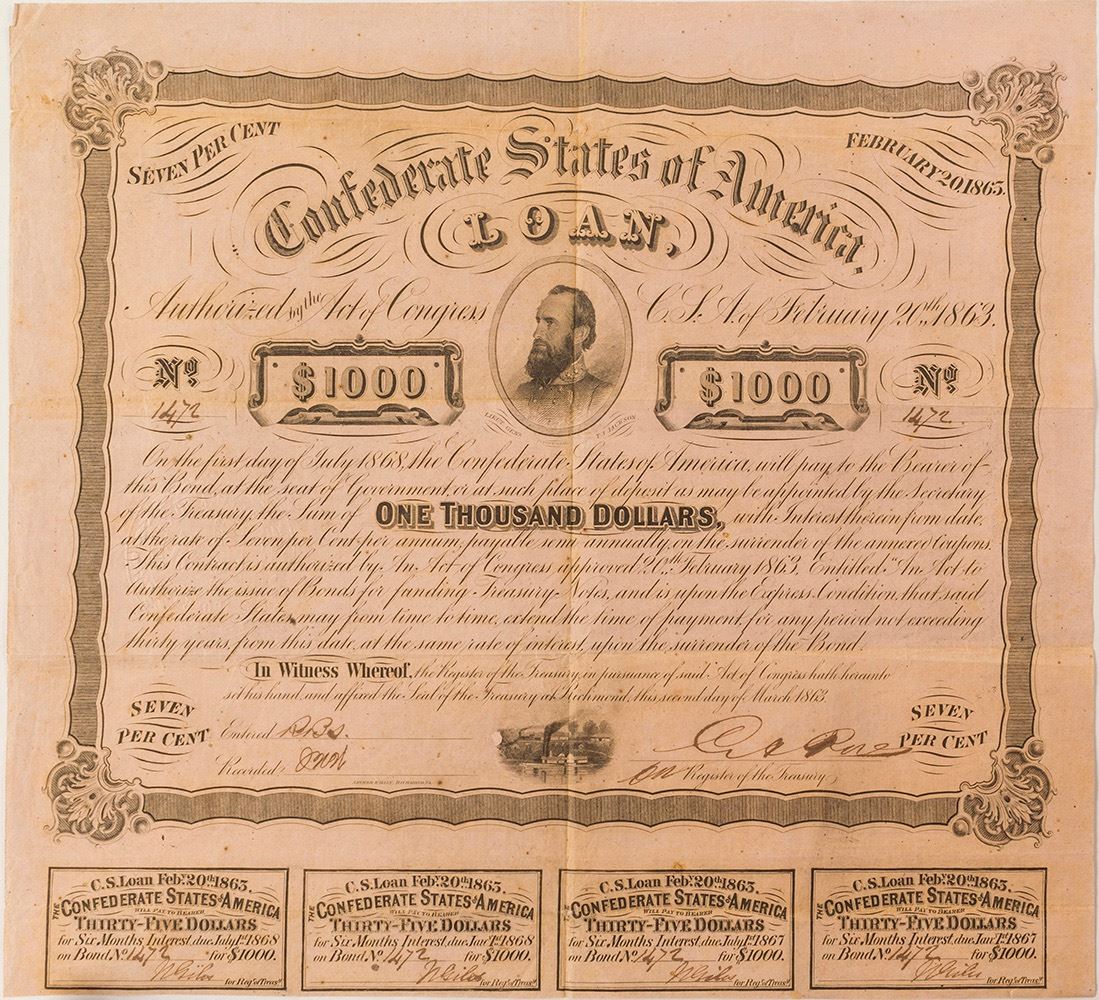 SEVEN PER CENT
FEBRUARY 20, 1863.
Confederate States of America.
LOAN,
Authorized by the Act of Congress C.S.A. of February 20th 1863.
No $1000 $1000 No
1472 1472
LIEUT. GENL T.J. JACKSON
On the first day of July 1868, the Confederate States of America, will pay to the Bearer of
this Bond, at the seat of Government or at such place of deposit as may be appointed by the Secretary
of the Treasury, the Sum of ONE THOUSAND DOLLARS, with Interest thereon from date,
at the rate of Seven per Cent per annum, payable semi annually, on the surrender of the annexed Coupons.
This Contract is authorized by An Act of Congress approved 20th February 1863, Entitled "An Act to
Authorize the issue of Bonds for funding Treasury Notes, and is upon the Express Condition that said
Confederate States may from time to time, extend the time of payment, for any period not exceeding
thirty years, from this date, at the same rate of interest, upon the surrender of the Bond.
In Witness Whereof, the Register of the Treasury, in pursuance of said Act of Congress hath hereunto
set his hand and affixed the Seal of the Treasury at Richmond, this second day of March 1863.
SEVEN
PER CENT
SEVEN
PER CENT
Entered
Recorded
Register of the Treasury
C.S. Loan Feby. 20th 1863.
THE CONFEDERATE STATES of AMERICA
WILL PAY TO BEARER
THIRTY-FIVE DOLLARS
for Six Months Interest due July 1st 1868
on Bond No. 1472 for $1000.
for Regr of Treasy
C.S. Loan Feby. 20th 1863.
THE CONFEDERATE STATES of AMERICA
WILL PAY TO BEARER
THIRTY-FIVE DOLLARS
for Six Months Interest due Jany 1st 1868
on Bond No. 1472 for $1000.
for Regr of Treasy
C.S. Loan Feby. 20th 1863.
THE CONFEDERATE STATES of AMERICA
WILL PAY TO BEARER
THIRTY-FIVE DOLLARS
for Six Months Interest due July 1st 1867
on Bond No. 1472 for $1000.
for Regr of Treasy
C.S. Loan Feby. 20th 1863.
THE CONFEDERATE STATES of AMERICA
WILL PAY TO BEARER
THIRTY-FIVE DOLLARS
for Six Months Interest due Jany 1st 1867
on Bond No. 1472 for $1000.
for Regr of Treasy